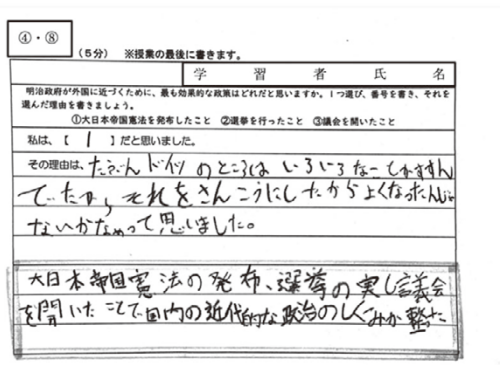 ④・⑧
(5分) ※授業の最後に書きます。
学 習 者 氏 名
明治政府が外国に近づくために、最も効果的な政策はどれだと思いますか。1つ選び、番号を書き、それを
選んだ理由を書きましょう。
①大日本帝国憲法を発布したこと ②選挙を行ったこと ③議会を開いたこと
私は、【 1 】だと思いました。
その理由は、たぶんドイツのところはいろいろなことがすすん
でたから、それをさんこうにしたからよくなったんじゃ
ないかなぁって思いました。
大日本帝国憲法の発布、選挙の実し議会
を開いたことで国内の近代的な政治のしくみが整った